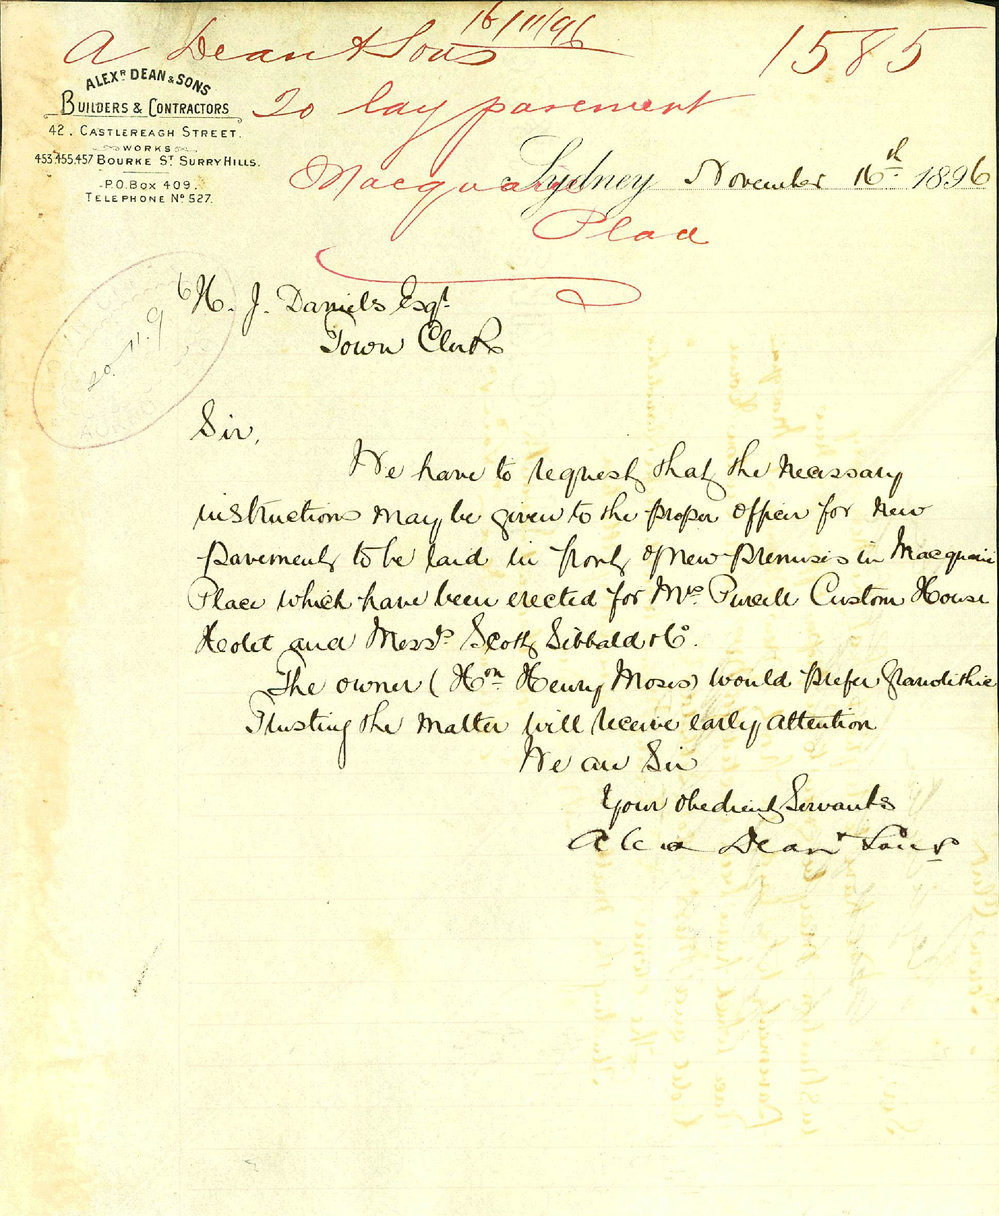 16/11/96
A Dean & Sons
1585
To lay pavement
Macquarie
Place
ALEXR DEAN & SONS
BUILDERS & CONTRACTORS
42. CASTLEREAGH STREET.
WORKS
453.455.457 BOURKE ST SURRY HILLS.
P.O. BOX 409.
TELEPHONE No 527.
Sydney November 16th 1896
H. J. Daniels Esqr.
Town Clerk
20.11.96
Sir,
We have to request that the necessary
instructions may be given to the proper officer for new
pavement to be laid in front of new premises in Macquarie
Place which have been erected for Mrs Purcell Custom House
Hotel and Messrs Scott Sibbald & Co.
The owner (Hon Henry Moses) would prefer Granolithic
Trusting the matter will receive early attention
We are Sir
Your obedient Servants
Alex Dean & Sons